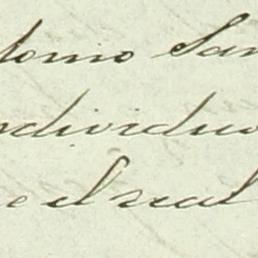 tonio San
ndividuo
e el real